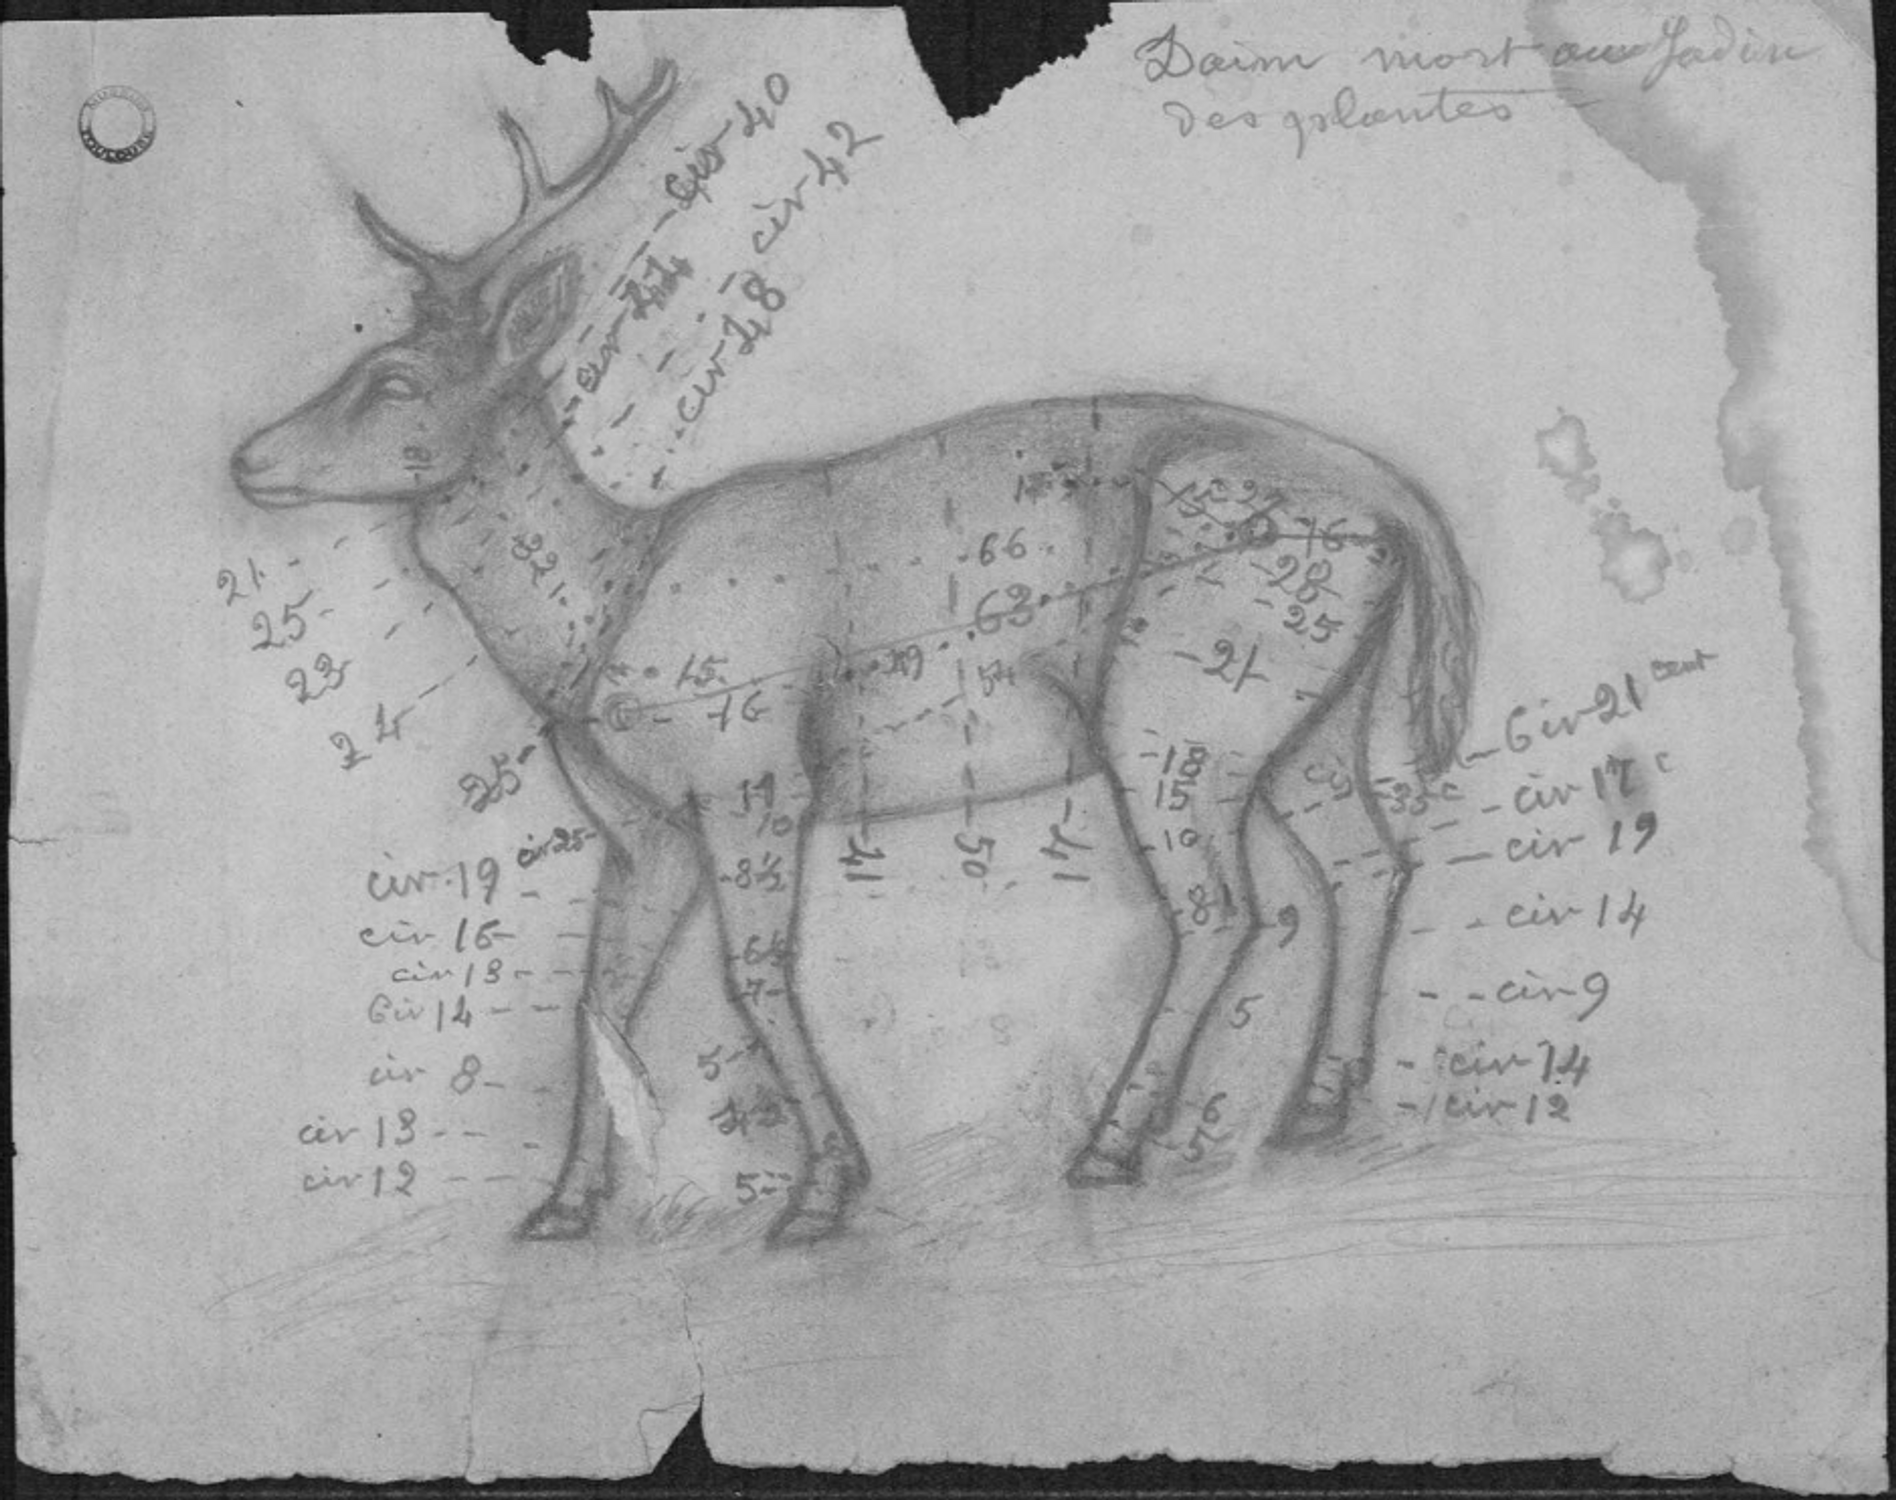 Daim mort au Jadin
des plantes
MUSEUM
TOULOUSE
cir 40
cir 42
cir 44
cir 48
18
21
25
23
24
25
321
66
63
15
16
49
54
16
28
25
21
41
50
41
cir 25
cir 19
cir 16
cir 13
Cir 14
cir 8
cir 13
cir 12
10
8½
6½
7
5
5
15
10
8
9
5
6
5
Cir 21 cent
cir 17 c
cir 19
cir 14
cir 9
cir 14
cir 12